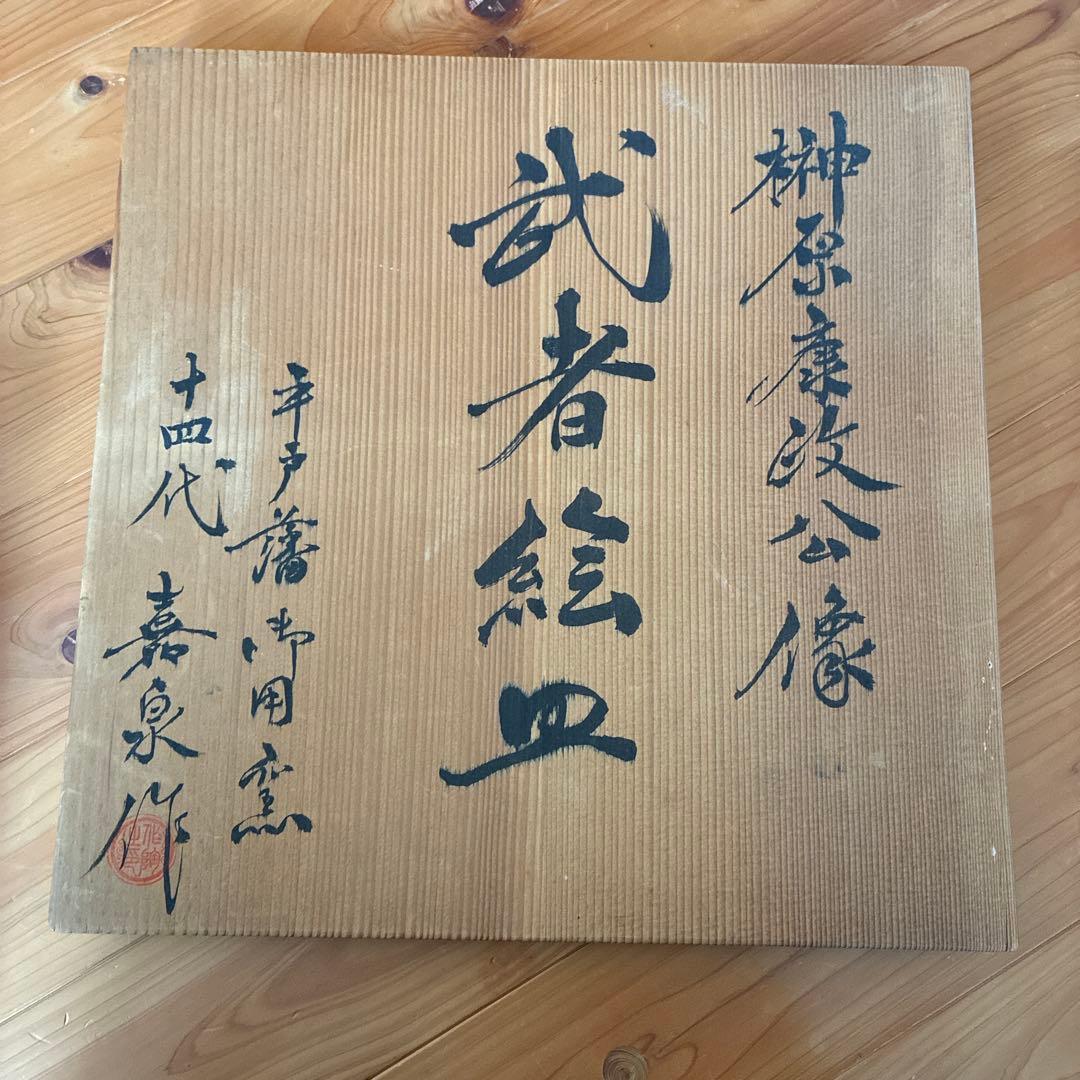 榊原康政公像
武者絵皿
平戸藩御用窯
十四代 嘉泉作